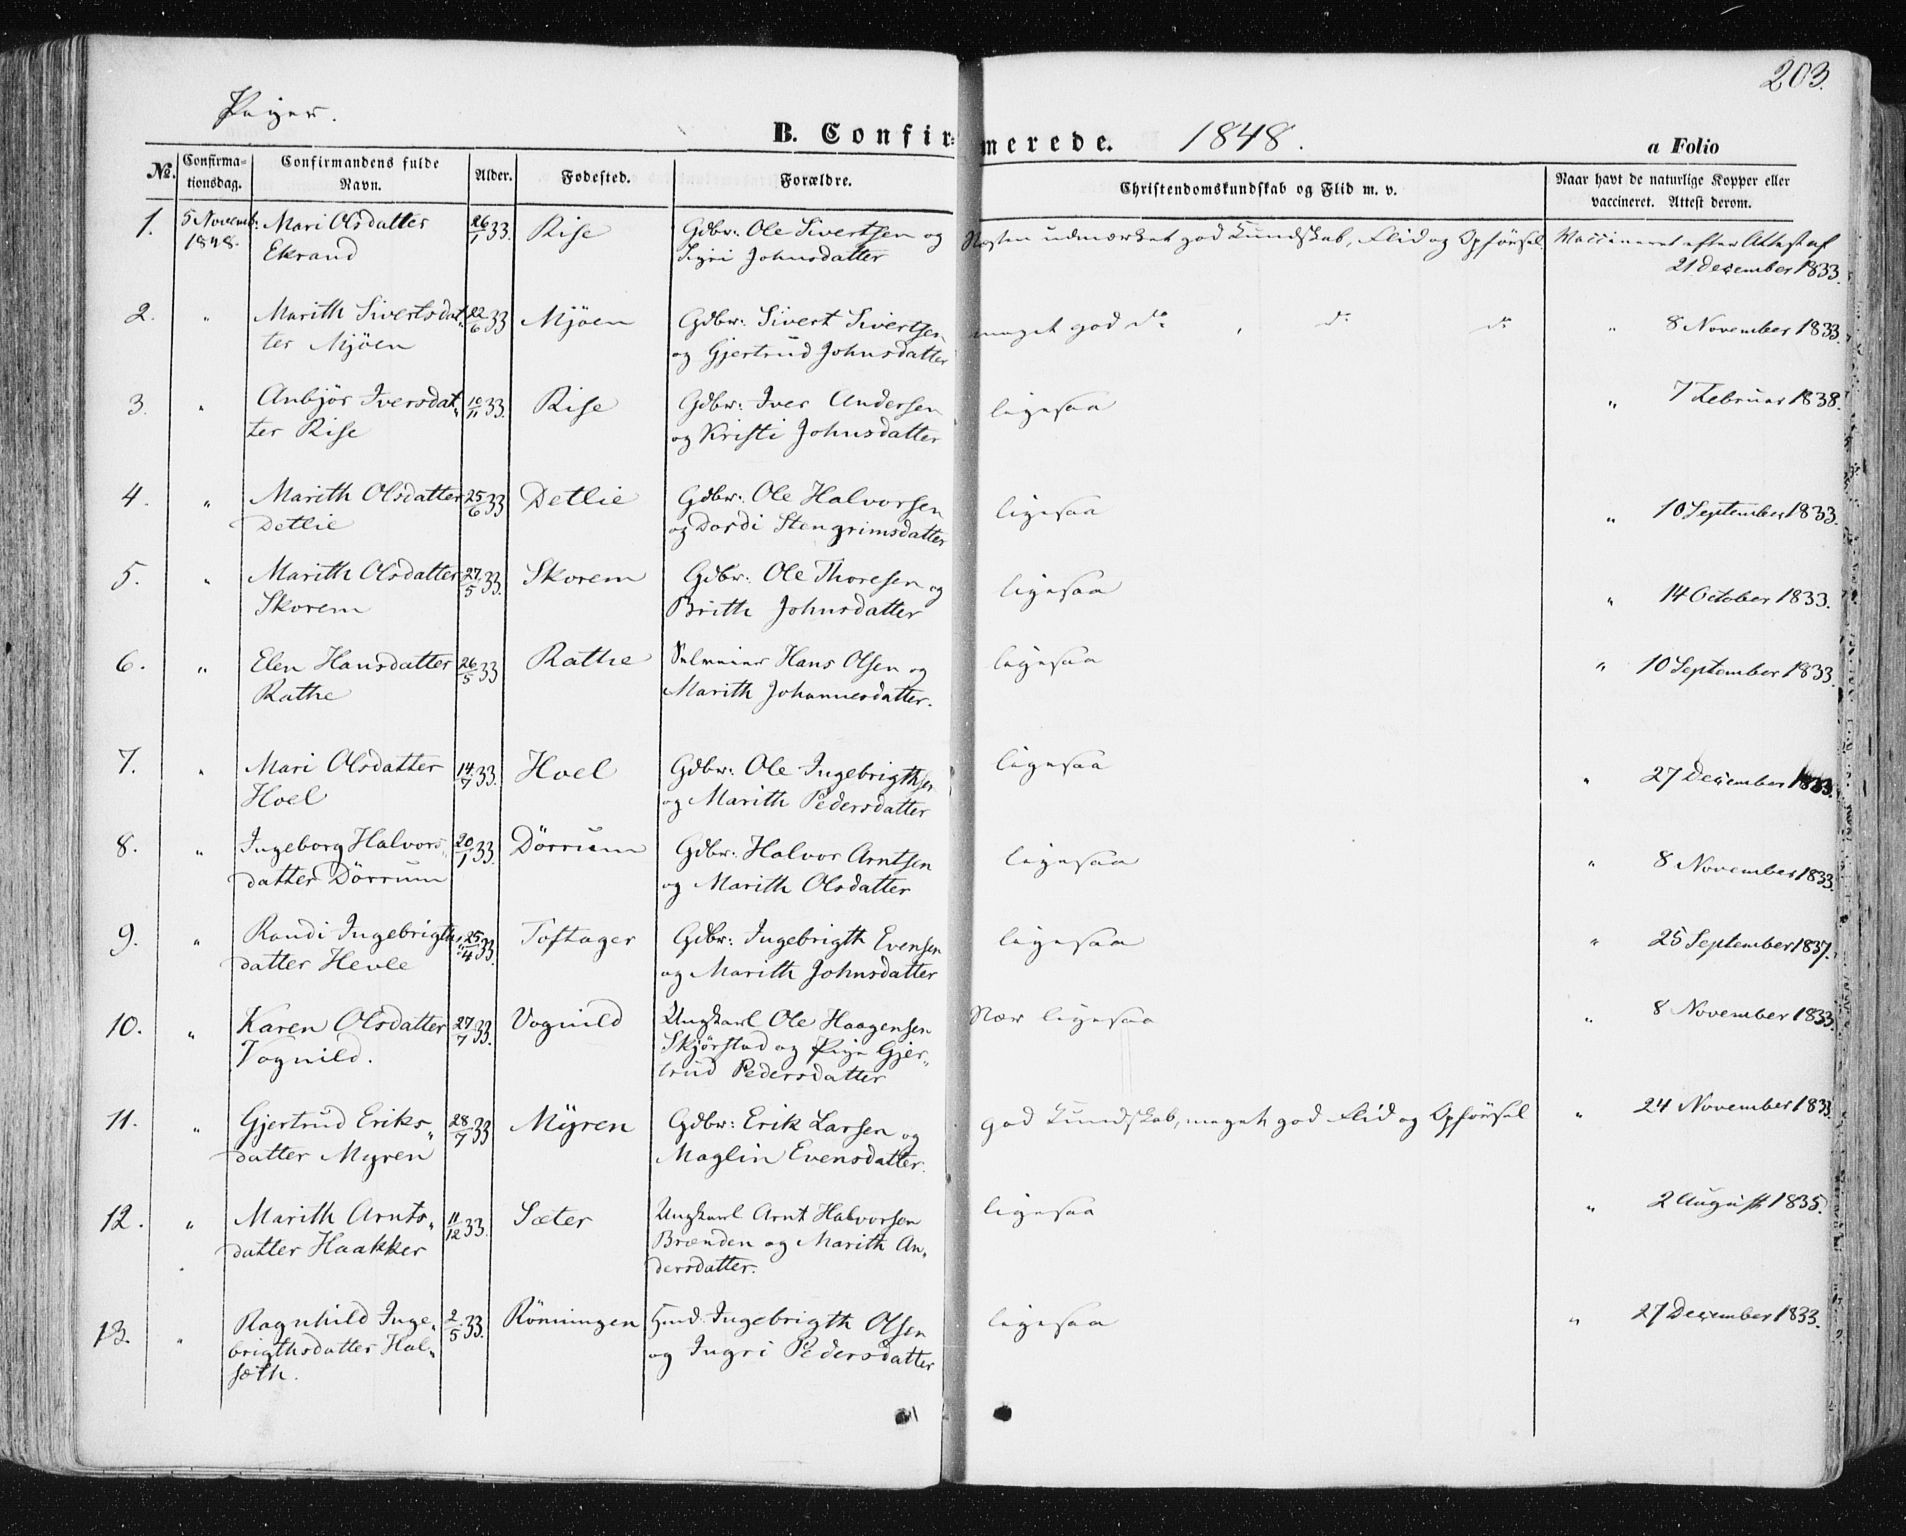 203.
Piger.
B. Confirmerede. 1848.
a Folio
No. Confirmationsdag. Confirmandens fulde Navn. Alder. Fødested. Forældre. Christendomskundskab og Flid m. v. Naar havt de naturlige Kopper eller vaccineret. Attest derom.
1. 5 Novemb: Mari Olsdatter 26/1 33. Rise Gdbr: Ole Sivertsen og Næsten udmærket god Kundskab, Flid og Opførsel Vaccineret efter Attest af
1848. Ekrand Sigri Johnsdatter 21 December 1833.
2. " Marith Sivertsdat- 22/6 33 Mjöen Gdbr: Sivert Sivertsen meget god do , do do " 8 November 1833.
ter Mjöen og Gjertrud Johnsdatter
3. " Anbjör Iversdat- 10/11 33. Rise Gdbr: Iver Andersen ligesaa " 7 Februar 1838.
ter Rise og Kristi Johnsdatter
4. " Marith Olsdatter 25/6 33 Detlie Gdbr: Ole Halvorsen ligesaa " 10 September 1833.
Detlie og Dordi Stengrimsdatter
5. " Marith Olsdatter 27/5 33. Skorem Gdbr: Ole Thoresen og ligesaa " 14 October 1833.
Skorem Brith Johnsdatter
6. " Elen Hansdatter 26/5 33 Rathe Selveier Hans Olsen og ligesaa " 10 September 1833.
Rathe Marith Johannesdatter.
7. " Mari Olsdatter 14/7 33. Hoel Gdbr: Ole Ingebrigthsen ligesaa " 27 December 1833.
Hoel og Marith Pedersdatter
8. " Ingeborg Halvors- 20/1 33. Dörrum Gdbr: Halvor Arntsen ligesaa " 8 November 1833.
datter Dörrum og Marith Olsdatter
9. " Randi Ingebrigths- 25/4 33. Toftager Gdbr: Ingebrigth Evensen ligesaa " 25 September 1837.
datter Hevle og Marith Johnsdatter
10. " Karen Olsdatter 27/7 33. Vognild Ungkarl Ole Haagensen Nær ligesaa " 8 November 1833.
Vognild. Skjörstad og Pige Gjer-
trud Pedersdatter
11. " Gjertrud Eriks- 28/7 33 Myren Gdbr: Erik Larsen og god Kundskab, meget god Flid og Opførsel " 24 November 1833.
datter Myren Maglin Evensdatter.
12. " Marith Arnts- 11/12 33. Sæter Ungkarl Arnt Halvorsen ligesaa " 2 August 1835.
datter Haakker Brænden og Marith An-
dersdatter.
13. " Ragnhild Inge- 2/5 33. Rönningen Hmd. Ingebrigth Olsen ligesaa " 27 December 1833.
brigthsdatter Hal- og Ingri Pedersdatter
sæth.